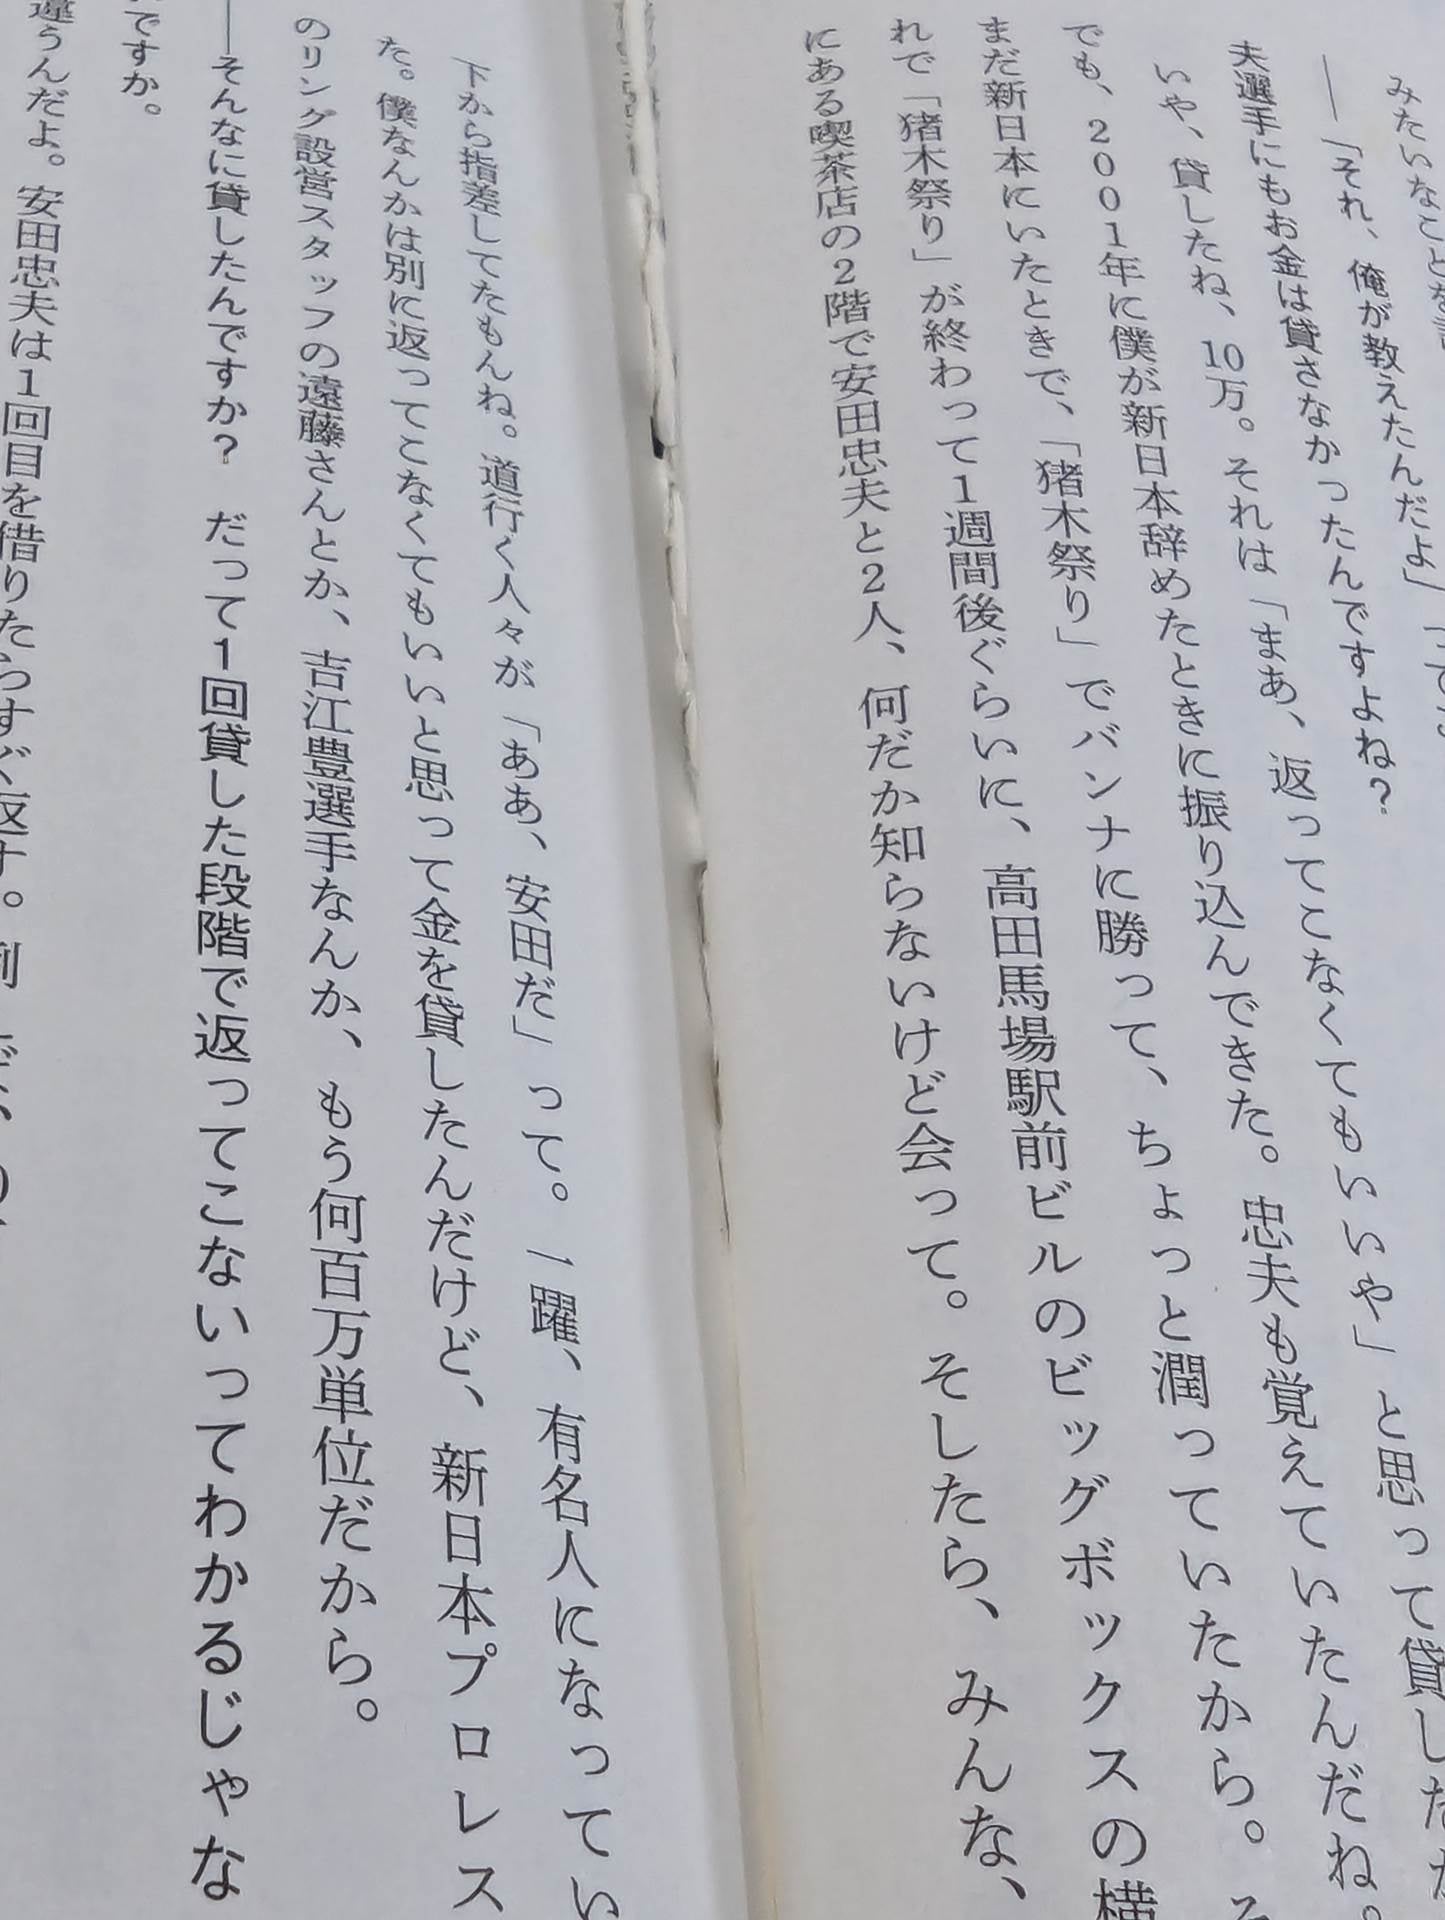 みたいなことを言
――「それ、俺が教えたんだよ」って
夫選手にもお金は貸さなかったんですよね?
いや、貸したね、10万。それは「まあ、返ってこなくてもいいや」と思って貸した
でも、2001年に僕が新日本辞めたときに振り込んできた。忠夫も覚えていたんだね。
まだ新日本にいたときで、「猪木祭り」でバンナに勝って、ちょっと潤っていたから。そ
れで「猪木祭り」が終わって1週間後ぐらいに、高田馬場駅前ビルのビッグボックスの横
にある喫茶店の2階で安田忠夫と2人、何だか知らないけど会って。そしたら、みんな、
下から指差してたもんね。道行く人々が「ああ、安田だ」って。一躍、有名人になってい
た。僕なんかは別に返ってこなくてもいいと思って金を貸したんだけど、新日本プロレス
のリング設営スタッフの遠藤さんとか、吉江豊選手なんか、もう何百万単位だから。
――そんなに貸したんですか? だって1回貸した段階で返ってこないってわかるじゃな
ですか。
違うんだよ。安田忠夫は1回目を借りたらすぐ返す。